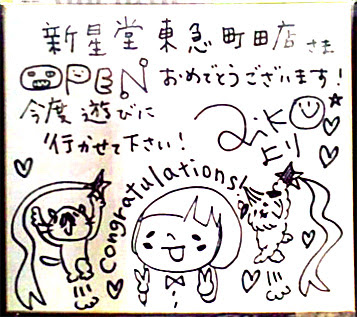 新星堂東急町田店さま
OPENおめでとうございます!
今度遊びに
行かせて下さい!
RiKO
より
Congratulations!